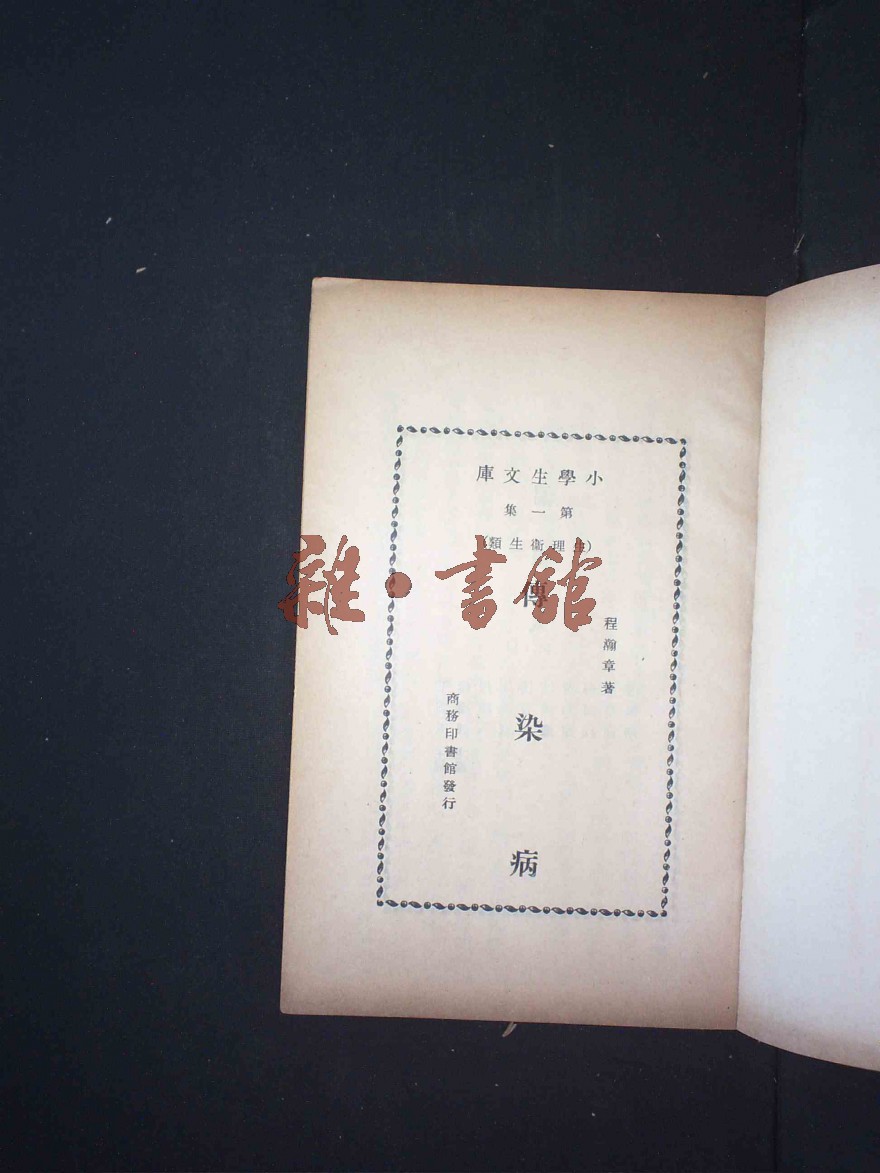 小學生文庫
第一集
(生理衞生類)
程瀚章著
傳染病
商務印書館發行
雜·書館